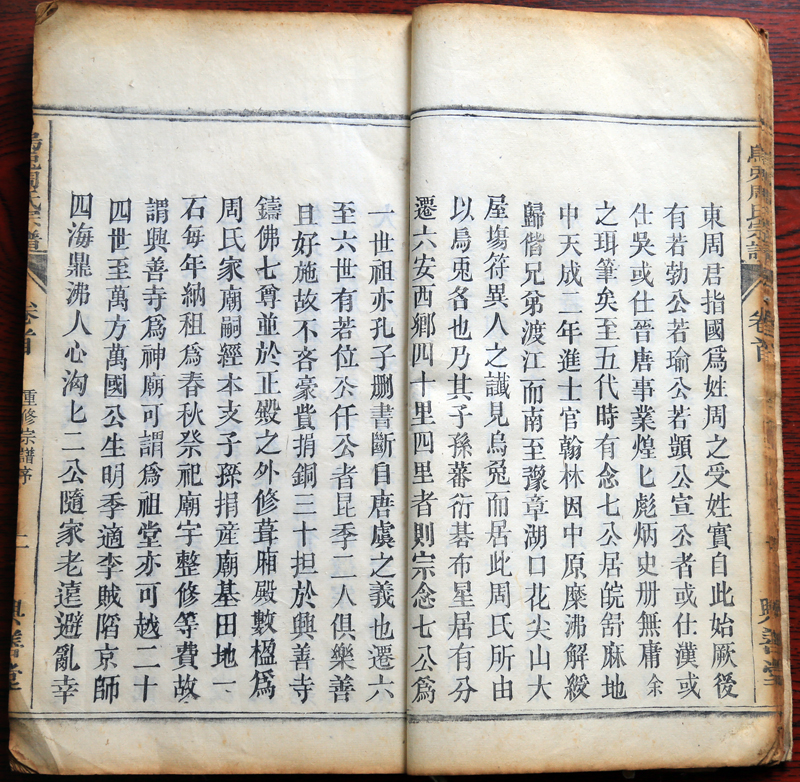 東周君指國爲姓周之受姓實自此始厥後
有若勃公若瑜公若顗公宣公者或仕漢或
仕吳或仕晉唐事業煌匕彪炳史册無庸余
之珥筆矣至五代時有念七公居皖舒麻地
中天成二年進士官翰林因中原糜沸解綬
歸偕兄弟渡江而南至豫章湖口花尖山大
屋塲符異人之讖見烏兎而居此周氏所由
以烏兎名也乃其子孫蕃衍碁布星居有分
遷六安西鄉四十里四里者則宗念七公爲
一世祖亦孔子刪書斷自唐虞之義也遷六
至六世有若位公仟公者昆季二人俱樂善
且好施故不吝豪費捐銅三十担於興善寺
鑄佛七尊並於正殿之外修葺廂殿數楹爲
周氏家廟嗣經本支子孫捐産廟基田地一
石每年納租爲春秋祭祀廟宇整修等費故
謂興善寺爲神廟可謂爲祖堂亦可越二十
四世至萬方萬國公生明季適李賊陷京師
四海鼎沸人心洶匕二公隨家老遠避亂幸
卷首
重修宗譜序
二
興善堂